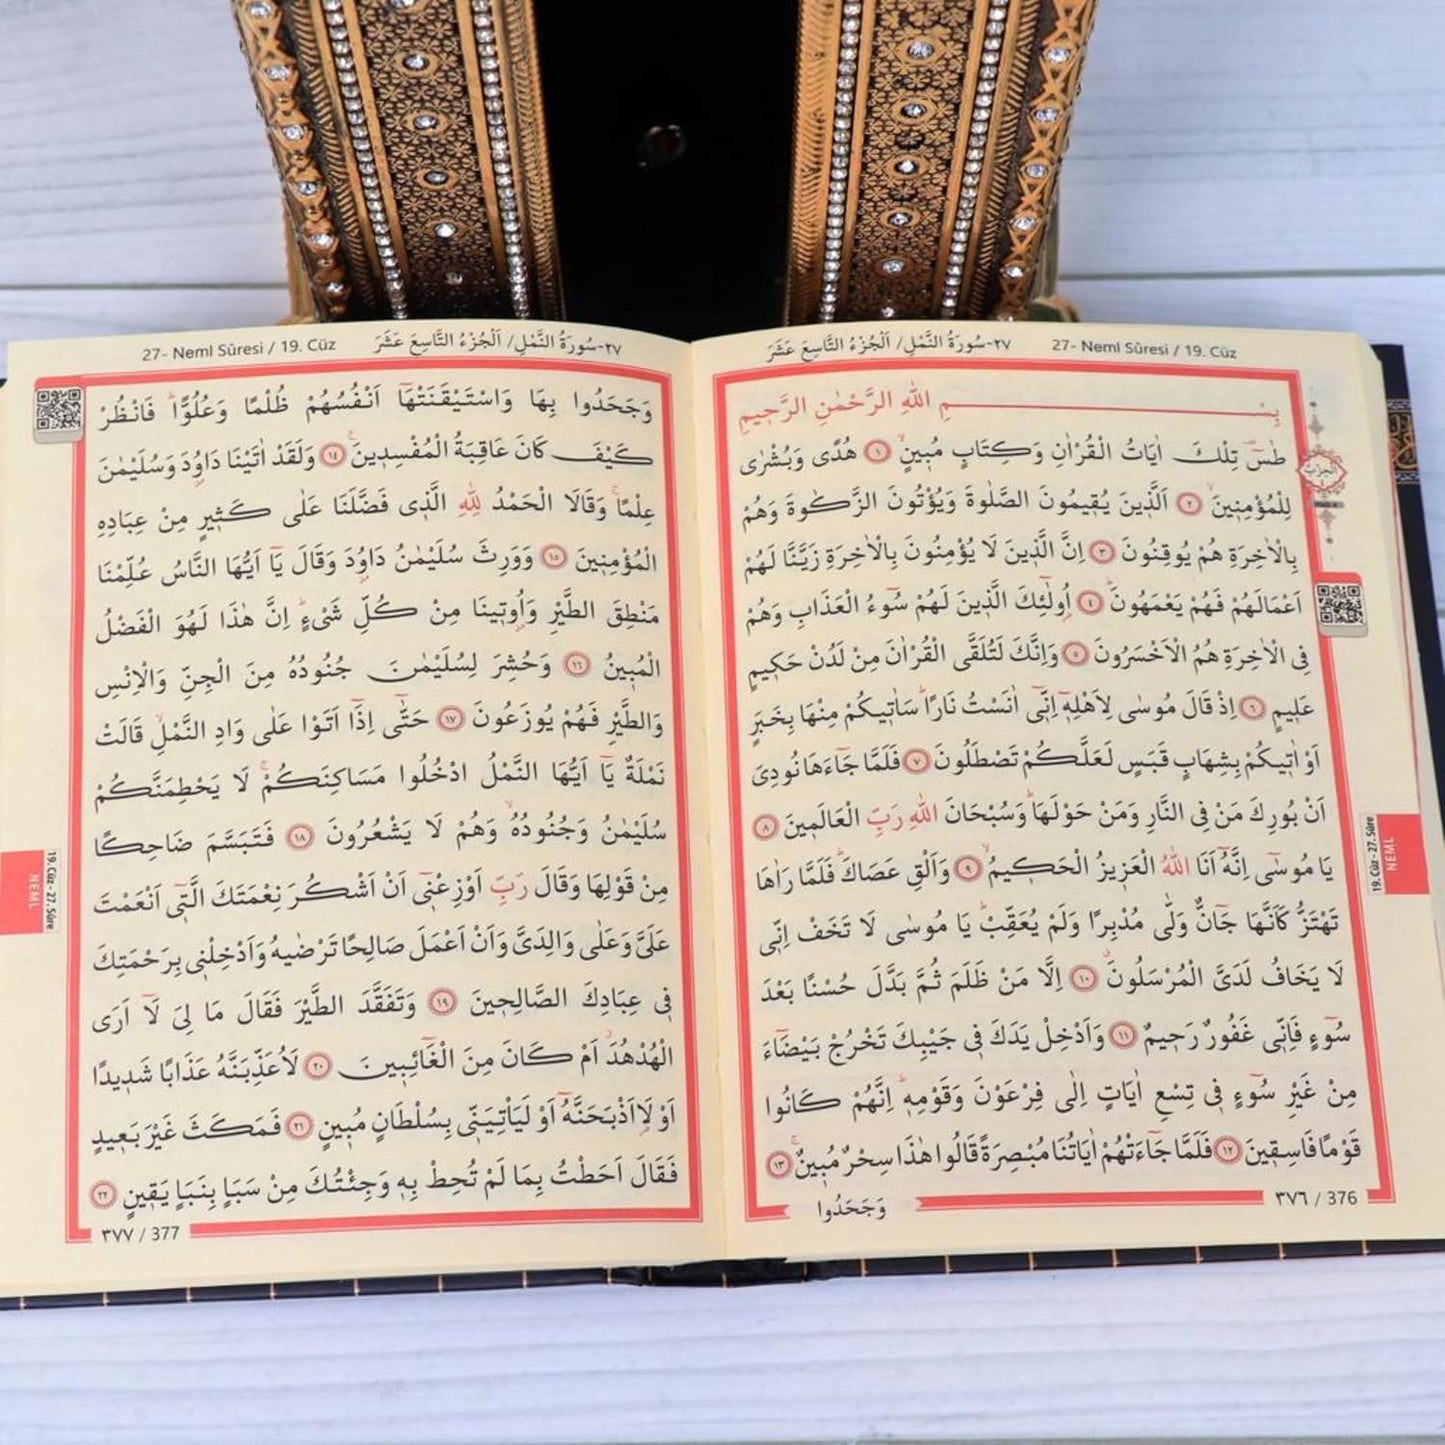 ٢٧-سُورَةُ النَّمْلِ/ اَلْجُزْءُ التَّاسِعَ عَشَرَ 27- Neml Sûresi / 19. Cüz
بِسْمِ اللّٰهِ الرَّحْمٰنِ الرَّحٖيمِ
طٰسٓ تِلْكَ اٰيَاتُ الْقُرْاٰنِ وَكِتَابٍ مُبٖينٍۙ ﴿١﴾ هُدًى وَبُشْرٰى
لِلْمُؤْمِنٖينَۙ ﴿٢﴾ اَلَّذٖينَ يُقٖيمُونَ الصَّلٰوةَ وَيُؤْتُونَ الزَّكٰوةَ وَهُمْ
بِالْاٰخِرَةِ هُمْ يُوقِنُونَ ﴿٣﴾ اِنَّ الَّذٖينَ لَا يُؤْمِنُونَ بِالْاٰخِرَةِ زَيَّنَّا لَهُمْ
اَعْمَالَهُمْ فَهُمْ يَعْمَهُونَۜ ﴿٤﴾ اُو۬لٰٓئِكَ الَّذٖينَ لَهُمْ سُٓوءُ الْعَذَابِ وَهُمْ
فِى الْاٰخِرَةِ هُمُ الْاَخْسَرُونَ ﴿٥﴾ وَاِنَّكَ لَتُلَقَّى الْقُرْاٰنَ مِنْ لَدُنْ حَكٖيمٍ
عَلٖيمٍ ﴿٦﴾ اِذْ قَالَ مُوسٰى لِاَهْلِهٖٓ اِنّٖٓى اٰنَسْتُ نَارًاۜ سَاٰتٖيكُمْ مِنْهَا بِخَبَرٍ
اَوْ اٰتٖيكُمْ بِشِهَابٍ قَبَسٍ لَعَلَّكُمْ تَصْطَلُونَ ﴿٧﴾ فَلَمَّا جَٓاءَهَا نُودِىَ
اَنْ بُورِكَ مَنْ فِى النَّارِ وَمَنْ حَوْلَهَاۜ وَسُبْحَانَ اللّٰهِ رَبِّ الْعَالَمٖينَ ﴿٨﴾
يَا مُوسٰٓى اِنَّهُٓ اَنَا اللّٰهُ الْعَزٖيزُ الْحَكٖيمُۙ ﴿٩﴾ وَاَلْقِ عَصَاكَۜ فَلَمَّا رَاٰهَا
تَهْتَزُّ كَاَنَّهَا جَٓانٌّ وَلّٰى مُدْبِرًا وَلَمْ يُعَقِّبْۜ يَا مُوسٰى لَا تَخَفْ اِنّٖى
لَا يَخَافُ لَدَىَّ الْمُرْسَلُونَۗ ﴿١٠﴾ اِلَّا مَنْ ظَلَمَ ثُمَّ بَدَّلَ حُسْنًا بَعْدَ
سُٓوءٍ فَاِنّٖى غَفُورٌ رَحٖيمٌ ﴿١١﴾ وَاَدْخِلْ يَدَكَ فٖى جَيْبِكَ تَخْرُجْ بَيْضَٓاءَ
مِنْ غَيْرِ سُٓوءٍ فٖى تِسْعِ اٰيَاتٍ اِلٰى فِرْعَوْنَ وَقَوْمِهٖۜ اِنَّهُمْ كَانُوا
قَوْمًا فَاسِقٖينَ ﴿١٢﴾ فَلَمَّا جَٓاءَتْهُمْ اٰيَاتُنَا مُبْصِرَةً قَالُوا هٰذَا سِحْرٌ مُبٖينٌۚ ﴿١٣﴾
وَجَحَدُوا
٣٧٦ / 376
الحزب
19. Cüz - 27. Sûre
NEML
27- Neml Sûresi / 19. Cüz ٢٧-سُورَةُ النَّمْلِ/ اَلْجُزْءُ التَّاسِعَ عَشَرَ
وَجَحَدُوا بِهَا وَاسْتَيْقَنَتْهَٓا اَنْفُسُهُمْ ظُلْمًا وَعُلُوًّاۜ فَانْظُرْ
كَيْفَ كَانَ عَاقِبَةُ الْمُفْسِدٖينَ۟ ﴿١٤﴾ وَلَقَدْ اٰتَيْنَا دَاوُ۫دَ وَسُلَيْمٰنَ
عِلْمًاۚ وَقَالَا الْحَمْدُ لِلّٰهِ الَّذٖى فَضَّلَنَا عَلٰى كَثٖيرٍ مِنْ عِبَادِهِ
الْمُؤْمِنٖينَ ﴿١٥﴾ وَوَرِثَ سُلَيْمٰنُ دَاوُ۫دَ وَقَالَ يَٓا اَيُّهَا النَّاسُ عُلِّمْنَا
مَنْطِقَ الطَّيْرِ وَاُو۫تٖينَا مِنْ كُلِّ شَىْءٍۜ اِنَّ هٰذَا لَهُوَ الْفَضْلُ
الْمُبٖينُ ﴿١٦﴾ وَحُشِرَ لِسُلَيْمٰنَ جُنُودُهُ مِنَ الْجِنِّ وَالْاِنْسِ
وَالطَّيْرِ فَهُمْ يُوزَعُونَ ﴿١٧﴾ حَتّٰٓى اِذَٓا اَتَوْا عَلٰى وَادِ النَّمْلِۙ قَالَتْ
نَمْلَةٌ يَٓا اَيُّهَا النَّمْلُ ادْخُلُوا مَسَاكِنَكُمْۚ لَا يَحْطِمَنَّكُمْ
سُلَيْمٰنُ وَجُنُودُهُۙ وَهُمْ لَا يَشْعُرُونَ ﴿١٨﴾ فَتَبَسَّمَ ضَاحِكًا
مِنْ قَوْلِهَا وَقَالَ رَبِّ اَوْزِعْنٖٓى اَنْ اَشْكُرَ نِعْمَتَكَ الَّتٖٓى اَنْعَمْتَ
عَلَىَّ وَعَلٰى وَالِدَىَّ وَاَنْ اَعْمَلَ صَالِحًا تَرْضٰيهُ وَاَدْخِلْنٖى بِرَحْمَتِكَ
فٖى عِبَادِكَ الصَّالِحٖينَ ﴿١٩﴾ وَتَفَقَّدَ الطَّيْرَ فَقَالَ مَا لِىَ لَٓا اَرَى
الْهُدْهُدَۘ اَمْ كَانَ مِنَ الْغَٓائِبٖينَ ﴿٢٠﴾ لَاُعَذِّبَنَّهُ عَذَابًا شَدٖيدًا
اَوْ لَا۬اَذْبَحَنَّهُٓ اَوْ لَيَأْتِيَنّٖى بِسُلْطَانٍ مُبٖينٍ ﴿٢١﴾ فَمَكَثَ غَيْرَ بَعٖيدٍ
فَقَالَ اَحَطْتُ بِمَا لَمْ تُحِطْ بِهٖ وَجِئْتُكَ مِنْ سَبَاٍ بِنَبَاٍ يَقٖينٍ ﴿٢٢﴾
٣٧٧ / 377
19. Cüz - 27. Sûre
NEML